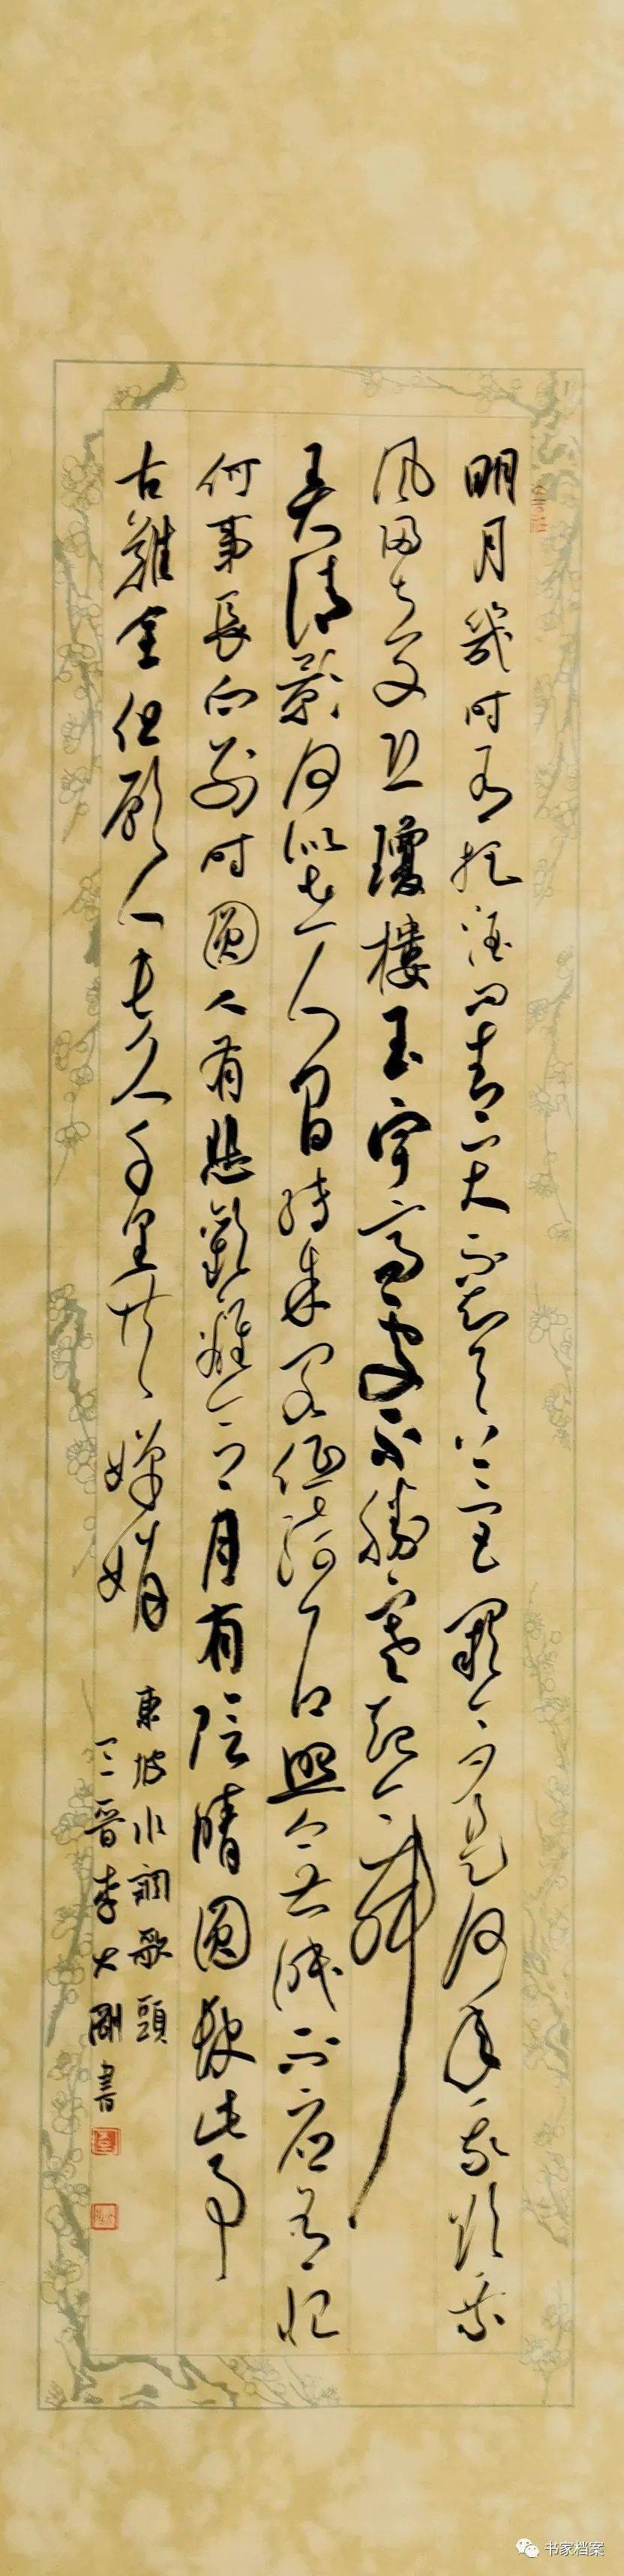 明月幾时有把酒问青天不知天上宫阙今夕是何年我欲乘
风归去又恐瓊樓玉宇高處不勝寒起舞
弄清影何似在人间转朱阁低绮户照無眠不应有恨
何事長向别时圆人有悲歡離合月有陰晴圆缺此事
古難全但願人長久千里共嬋娟
東坡水調歌頭
三晋李大剛書
书家档案